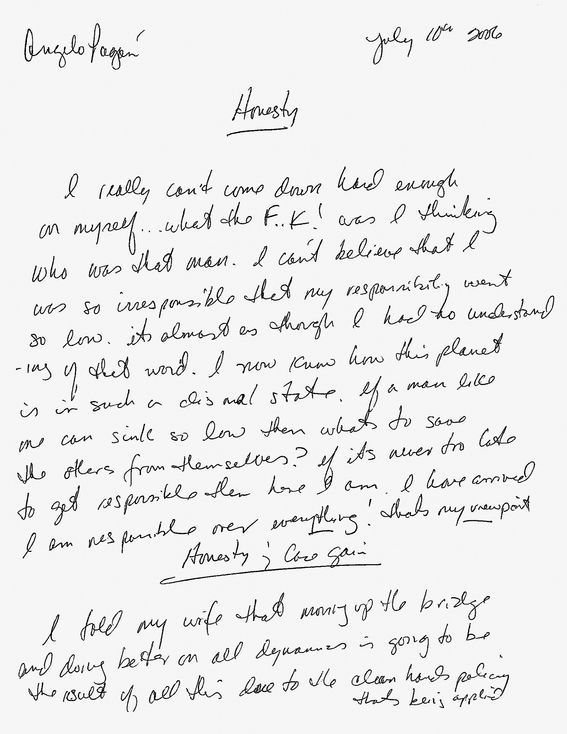 Angelo Pagán July 10th 2006
Honesty
I really can't come down hard enough
on myself...what the F..K! was I thinking
who was that man. I can't believe that I
was so irresponsible that my responsibility went
so low. its almost as though I had no understand
-ing of that word. I now know how this planet
is in such a dismal state. If a man like
me can sink so low then whats to save
the others from themselves? If its never too late
to get responsible then here I am. I have arrived
I am responsible over everything! thats my viewpoint
Honesty & Case gain
I told my wife that moving up the bridge
and doing better on all dynamics is going to be
the result of all this due to the clean hands policing
thats being applied